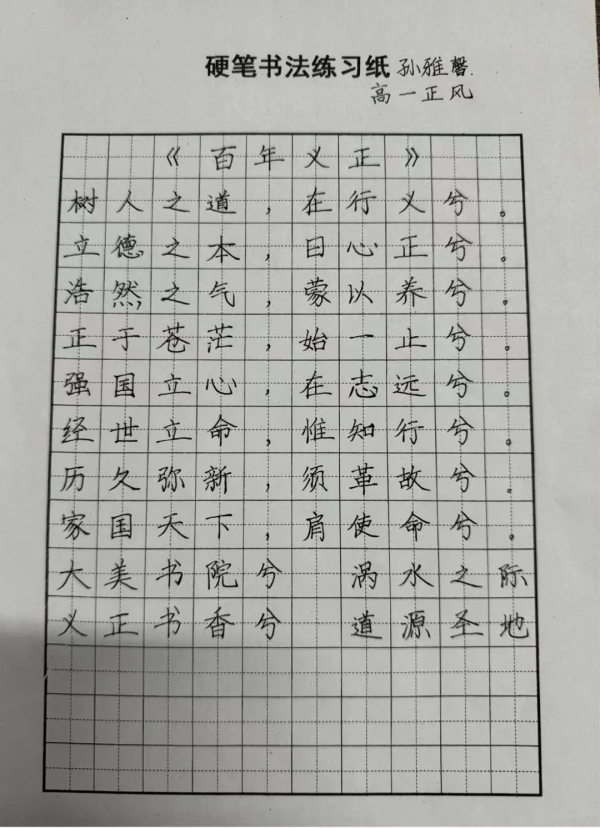 硬笔书法练习纸 孙雅馨
高一正风
《百年义正》
树人之道，在行义兮。
立德之本，曰心正兮。
浩然之气，蒙以养兮。
正于苍茫，始一止兮。
强国立心，在志远兮。
经世立命，惟知行兮。
历久弥新，须革故兮。
家国天下，肩使命兮。
大美书院兮 涡水之际
义正书香兮 道源圣地